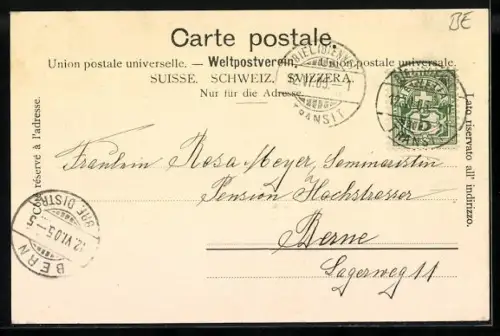 BE
Carte postale.
Union postale universelle. — Weltpostverein. — Union postale universale.
SUISSE. SCHWEIZ. SVIZZERA.
Nur für die Adresse.
Côté réservé à l'adresse.
Lato riservato all' indirizzo.
BIEL (BIENNE)
12.VI.05.–1
TRANSIT
BIEL (BIENNE)
HELVETIA
5
TRANSIT
Fräulein Rosa Meyer, Seminaristin
Pension Hochstrasser
Berne
Lagerweg 11
BERN
BRF. DISTR.
12.VI.05.–5